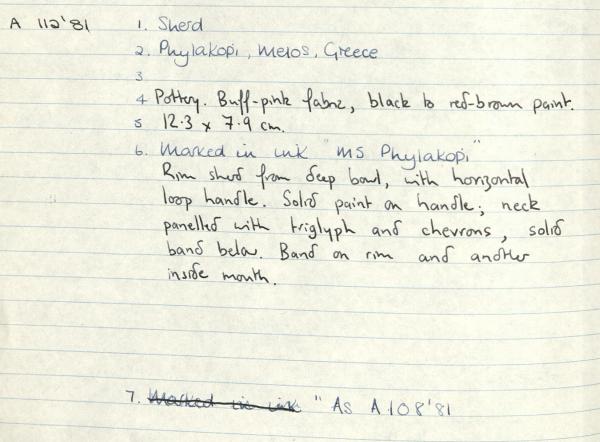 A 112'81 1. Sherd
2. Phylakopi, Melos, Greece
3
4 Pottery. Buff-pink fabric, black to red-brown paint.
5 12.3 x 7.9 cm.
6. Marked in ink "MS Phylakopi"
Rim sherd from deep bowl, with horizontal
loop handle. Solid paint on handle; neck
panelled with triglyph and chevrons, solid
band below. Band on rim and another
inside mouth.
7. Marked in ink " As A 108'81